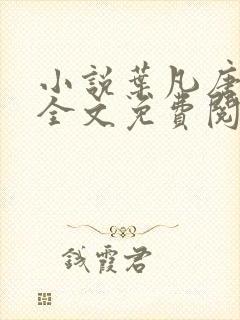 小說葉凡唐
全文免費閱
錢霞君